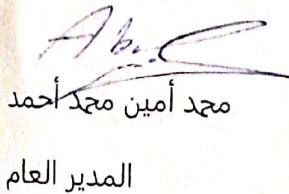 محمد أمين محمد أحمد
المدير العام